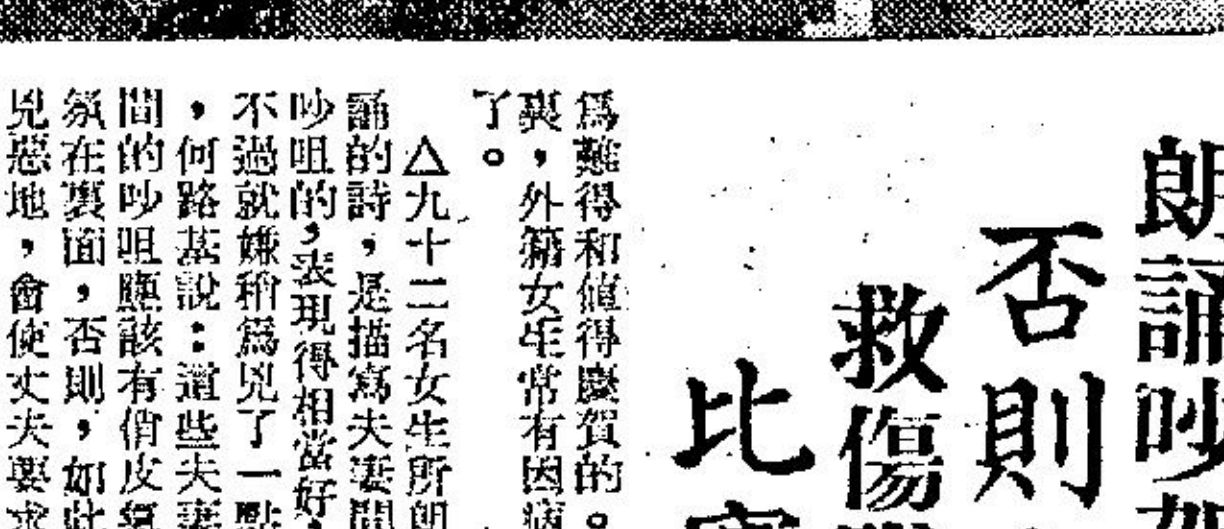 朗誦吵
否則
救傷
比
爲難得和值得慶賀的。
裏，外籍女生常有因病
了。
△九十二名女生所朗
誦的詩，是描寫夫妻間
吵咀的，表現得相當好，
不過就嫌稍爲兇了一點
，何路基說：這些夫妻
間的吵咀應該有俏皮氣
氛在裏面，否則，如此
兇惡地，會使丈夫要求